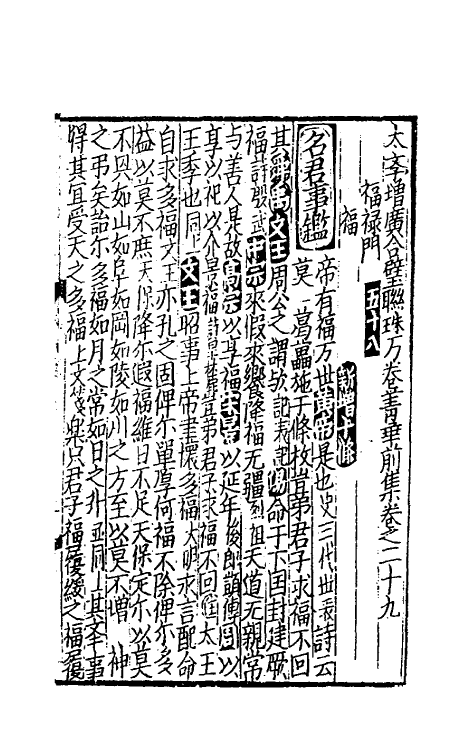 太學增廣合璧聯珠萬卷菁華前集卷之二十九
福祿門 五十八
福 新增十條
名君事鑑 帝有福万世黃帝是也史三代世表詩云
莫莫葛藟施于條枚豈弟君子求福不回
其舜禹文王周公之謂歟記表記湯命于下国封建厥
福詩殷武中宗來假來饗降福无疆烈祖天道无親常
与善人是故高宗以享福宋景以延年後郎顗傳周以
享以祀以介景福豈弟君子求福不回太王
王季也同上文王昭事上帝聿懷多福大明永言配命
自求多福文王亦孔之固俾尔單厚何福不除俾尔多
益以莫不庶天保降尔遐福維日不足天保定尔以莫
不興如山如阜如岡如陵如川之方至以莫不增 神
之弔矣詒尔多福如月之常如日之升並同上其文孝事
得其宜受天之多福上文箋樂只君子福履綏之福履